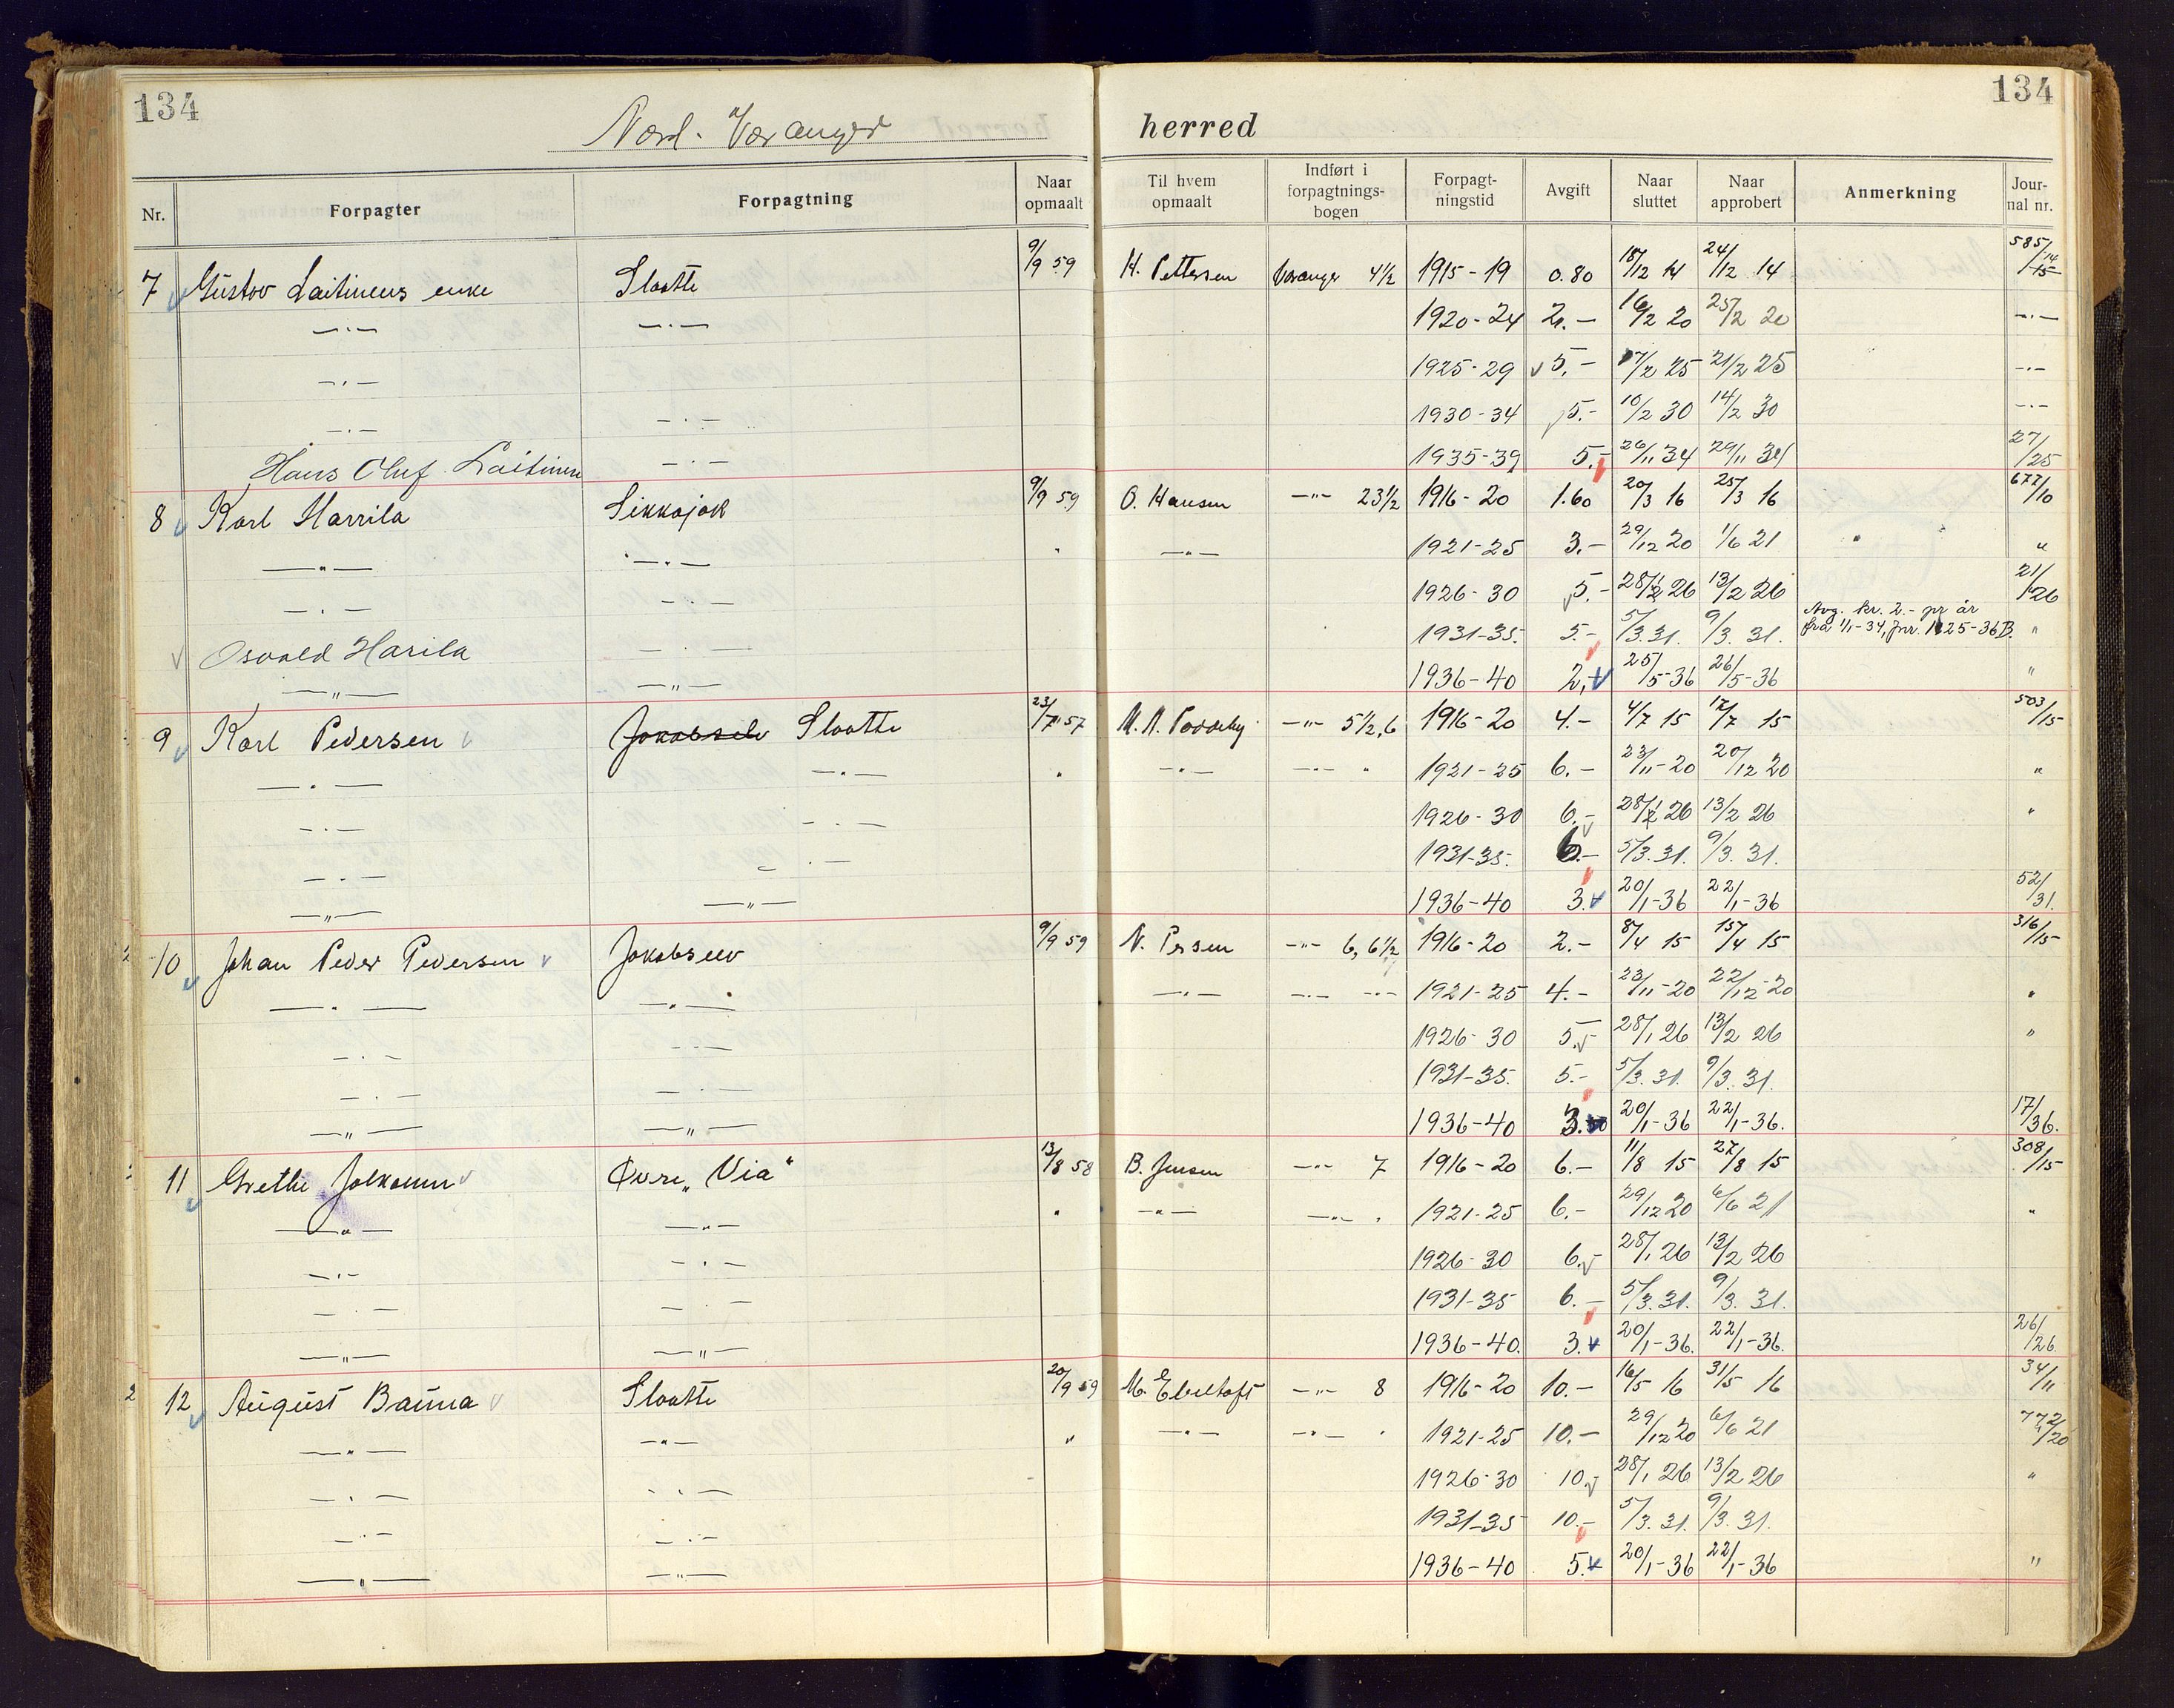 134
134
Nord-Varanger herred
Nr. Forpagter Forpagtning Naar opmaalt Til hvem opmaalt Indført i forpagtnings-bogen Forpagt-ningstid Avgift Naar sluttet Naar approbert Anmerkning Jour-nal nr.
7 Gustav Laitinens enke Slaatte 9/9 59 H. Pettersen Varanger 4½ 1915-19 0.80 18/12 14 24/12 14 585/14 15
—·— —·— 1920-24 2.— 16/2 20 25/2 20 —·—
—·— 1925-29 5.— 17/2 25 21/2 25 —·—
—·— —·— 1930-34 5.- 10/2 30 14/2 30 —·—
Hans Oluf Laitinen —·— 1935-39 5.- 26/11 34 29/11 34 27/25
8 Karl Harrila Sikkajok 9/9 59 O. Hansen —"— 23½ 1916-20 1.60 20/3 16 25/3 16 677/10
—"— —"— " —"— 1921-25 3.— 29/12 20 1/6 21 " "
—·— —·— 1926-30 5.- 28/1 26 13/2 26 21/26
Avg. kr. 2.- pr år
Osvald Harila —·— 1931-35. 5.- 5/3. 31. 9/3. 31. fra 1/1-34, Jnr. 1825-36 B. "
—"— —"— 1936-40 2,- 25/5-36 26/5-36 "
9 Karl Pedersen Jakobselv Slaatte 23/7 57 N. N. —"— 5½,6 1916-20 4.- 4/7 15 17/7 15 503/15
—"— —"— " —"— —"— " 1921-25 6.— 23/11-20 20/12 20 "
—·— —·— 1926-30 6.- 28/1 26 13/2 26 "
—·— —·— 1931-35. 6.- 5/3. 31. 9/3. 31.
—"— —"— 1936-40 3. 20/1-36 22/1-36 52/31.
10 Johan Peder Pedersen Jakobselv 9/9 59 N. Persen —"— 6, 6½ 1916-20 2.- 8/4 15 15/4 15 316/15
—"— —"— —"— —"— —"— 1921-25 4.- 23/11-20 22/12-20 "
—·— —·— 1926-30 5. 28/1 26 13/2 26 "
—·— —·— 1931-35. 5.- 5/3. 31. 9/3. 31.
—"— —"— 1936-40 3.50 20/1-36 22/1-36. 17/36.
11 Grethe Jolkonen Øvre „Via" 13/8 58 B. Jensen —"— 7 1916-20 6.— 11/8 15 27/8 15 308/15
—"— —"— " —"— —"— " 1921-25 6.- 29/12 20 6/6 21 "
—·— —·— 1926-30 6. 28/1 26 13/2 26
—·— —·— 1931-35 6.- 5/3. 31. 9/3. 31.
—"— —"— 1936-40. 3. 20/1-36. 22/1-36. 26/26
2 12 August Banna Slaatte 20/9 59 M. Ebeltoft —"— 8 1916-20 10.- 16/5 16 31/5 16 34/11
—"— —"— " —"— —"— " 1921-25 10.— 29/12 20 6/6 21 772/20
—·— —·— 1926-30 10. 28/1 26 13/2 26 "
—·— —·— 1931-35 10.- 5/3. 31. 9/3. 31.
—"— —"— 1936-40 5. 20/1-36 22/1-36 "